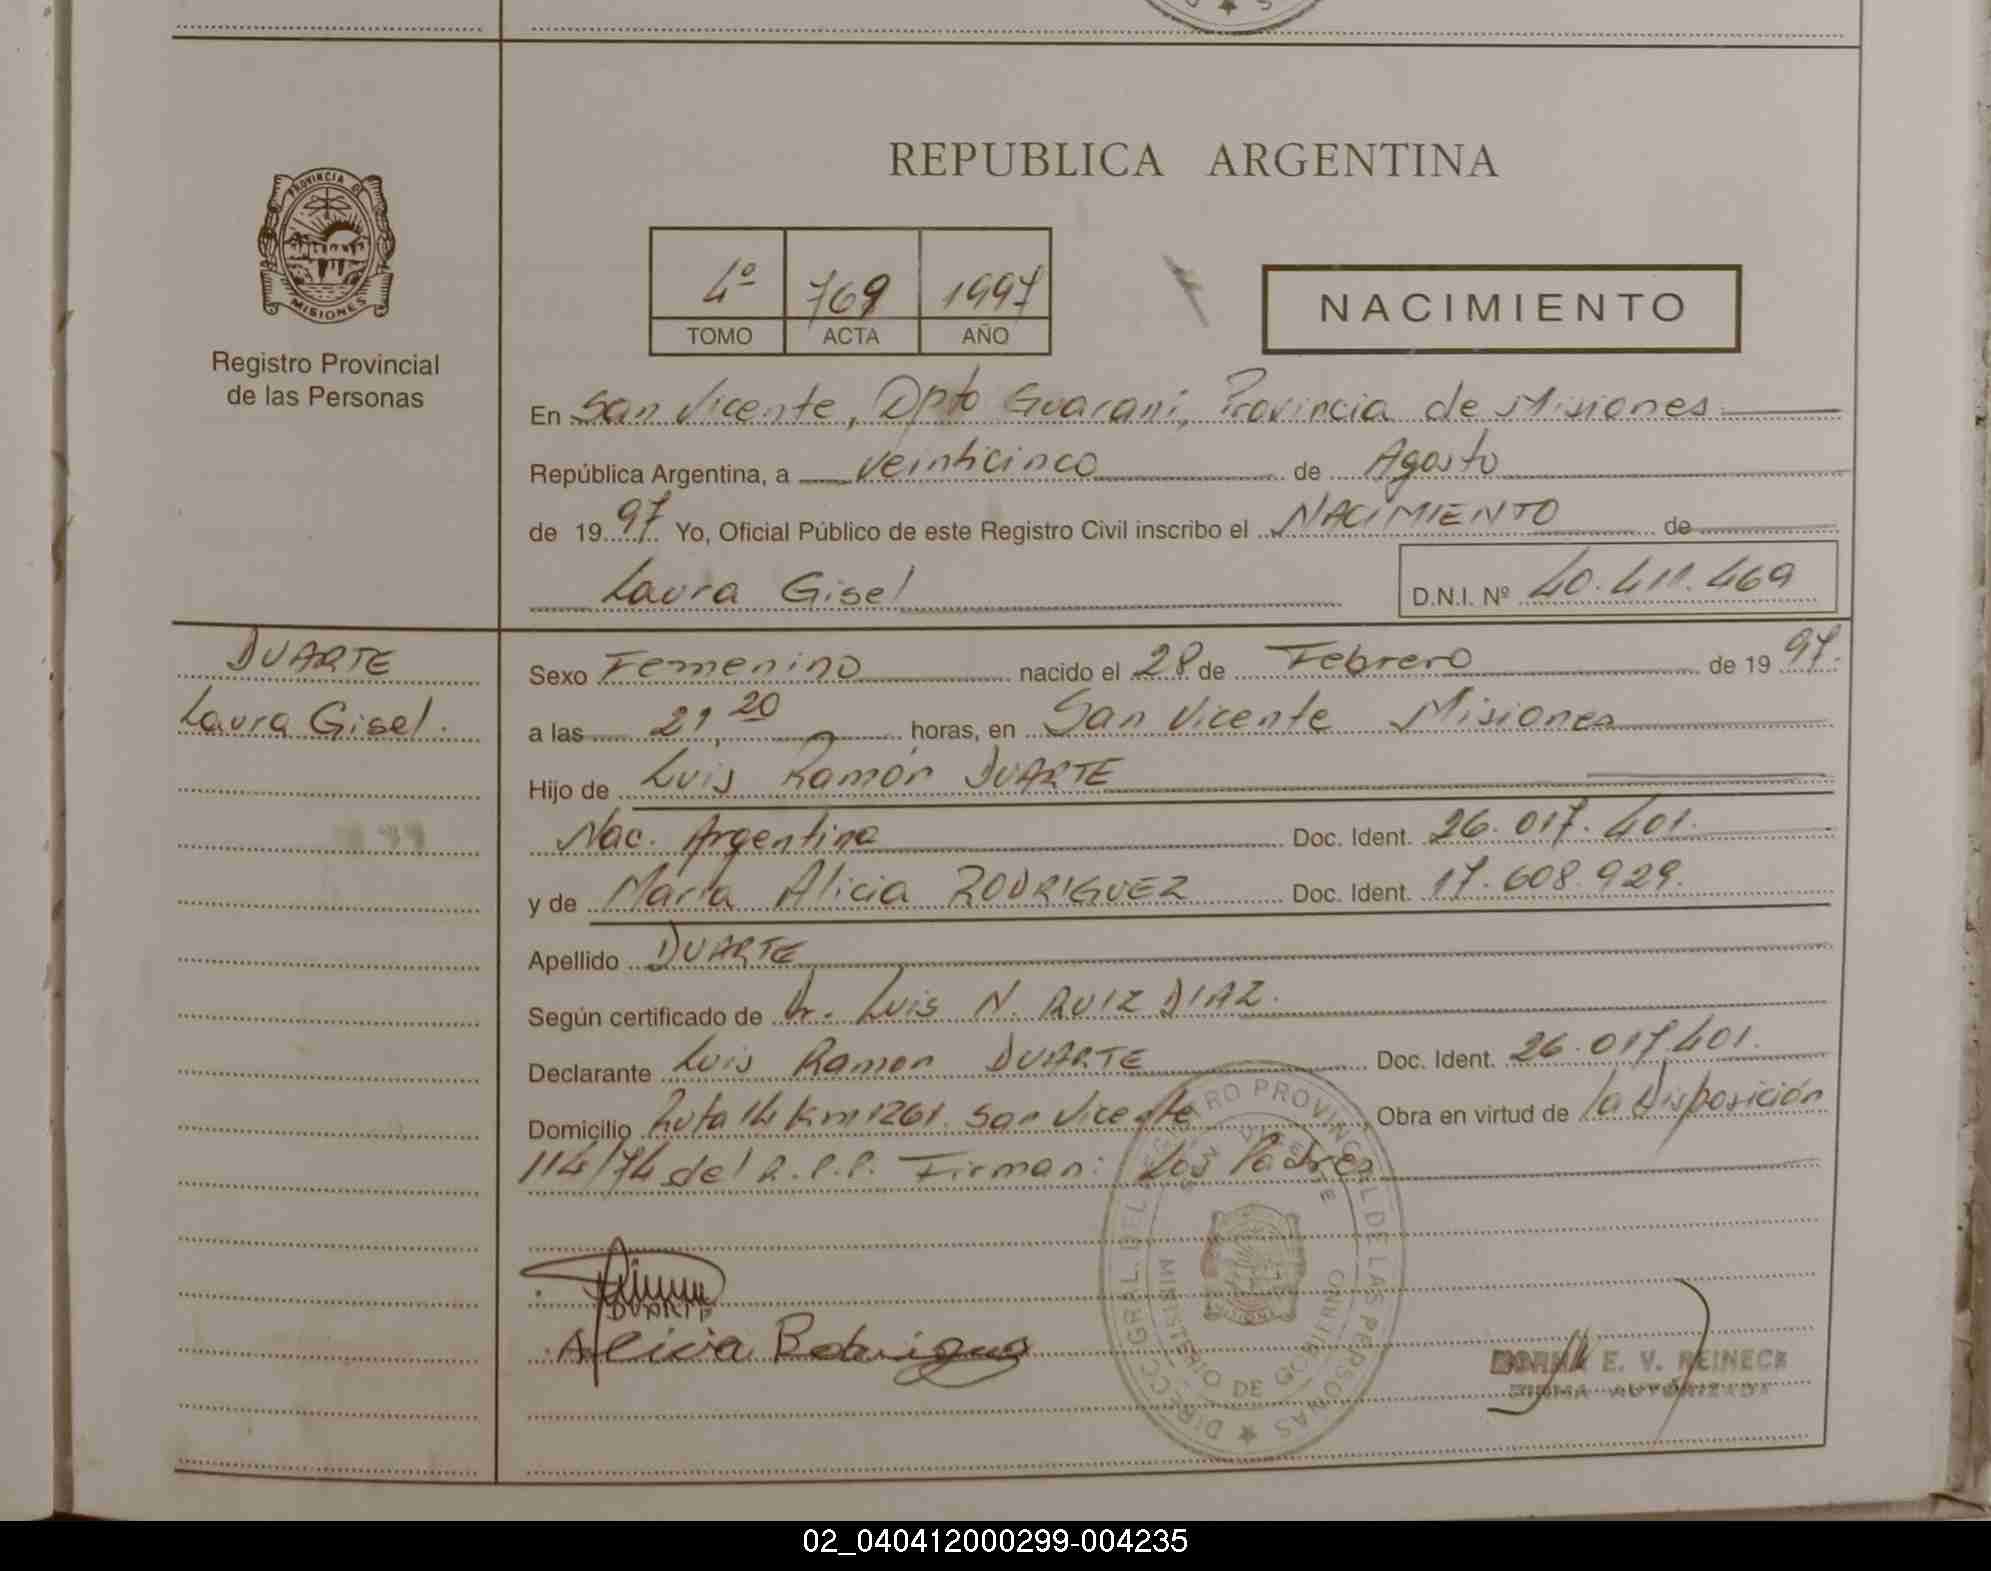 REPUBLICA ARGENTINA
PROVINCIA DE
MISIONES
Registro Provincial
de las Personas
4º 769 1997
TOMO ACTA AÑO
NACIMIENTO
En San Vicente, Dpto Guaraní, Provincia de Misiones
República Argentina, a veinticinco de Agosto
de 1997 Yo, Oficial Público de este Registro Civil inscribo el NACIMIENTO de
Laura Gisel
D.N.I. Nº 40.411.469
DUARTE
Laura Gisel.
Sexo Femenino nacido el 28 de Febrero de 1997.
a las 21,20 horas, en San Vicente Misiones
Hijo de Luis Ramón DUARTE
Nac. Argentina Doc. Ident. 26.017.401.
y de María Alicia RODRIGUEZ Doc. Ident. 17.608.929.
Apellido DUARTE
Según certificado de Dr. Luis N. RUIZ DIAZ.
Declarante Luis Ramon DUARTE Doc. Ident. 26.017.401.
Domicilio Ruta 14 Km 1261. San Vicente Obra en virtud de la Disposición
114/74 del R.P.P. Firman: Los Padres
DUARTE
Alicia Rodriguez
DIRECC. GRAL. DEL REGISTRO PROVINCIAL DE LAS PERSONAS
SAN VICENTE
MINISTERIO DE GOBIERNO
E. V. REINECK
FIRMA AUTORIZADA
02_040412000299-004235